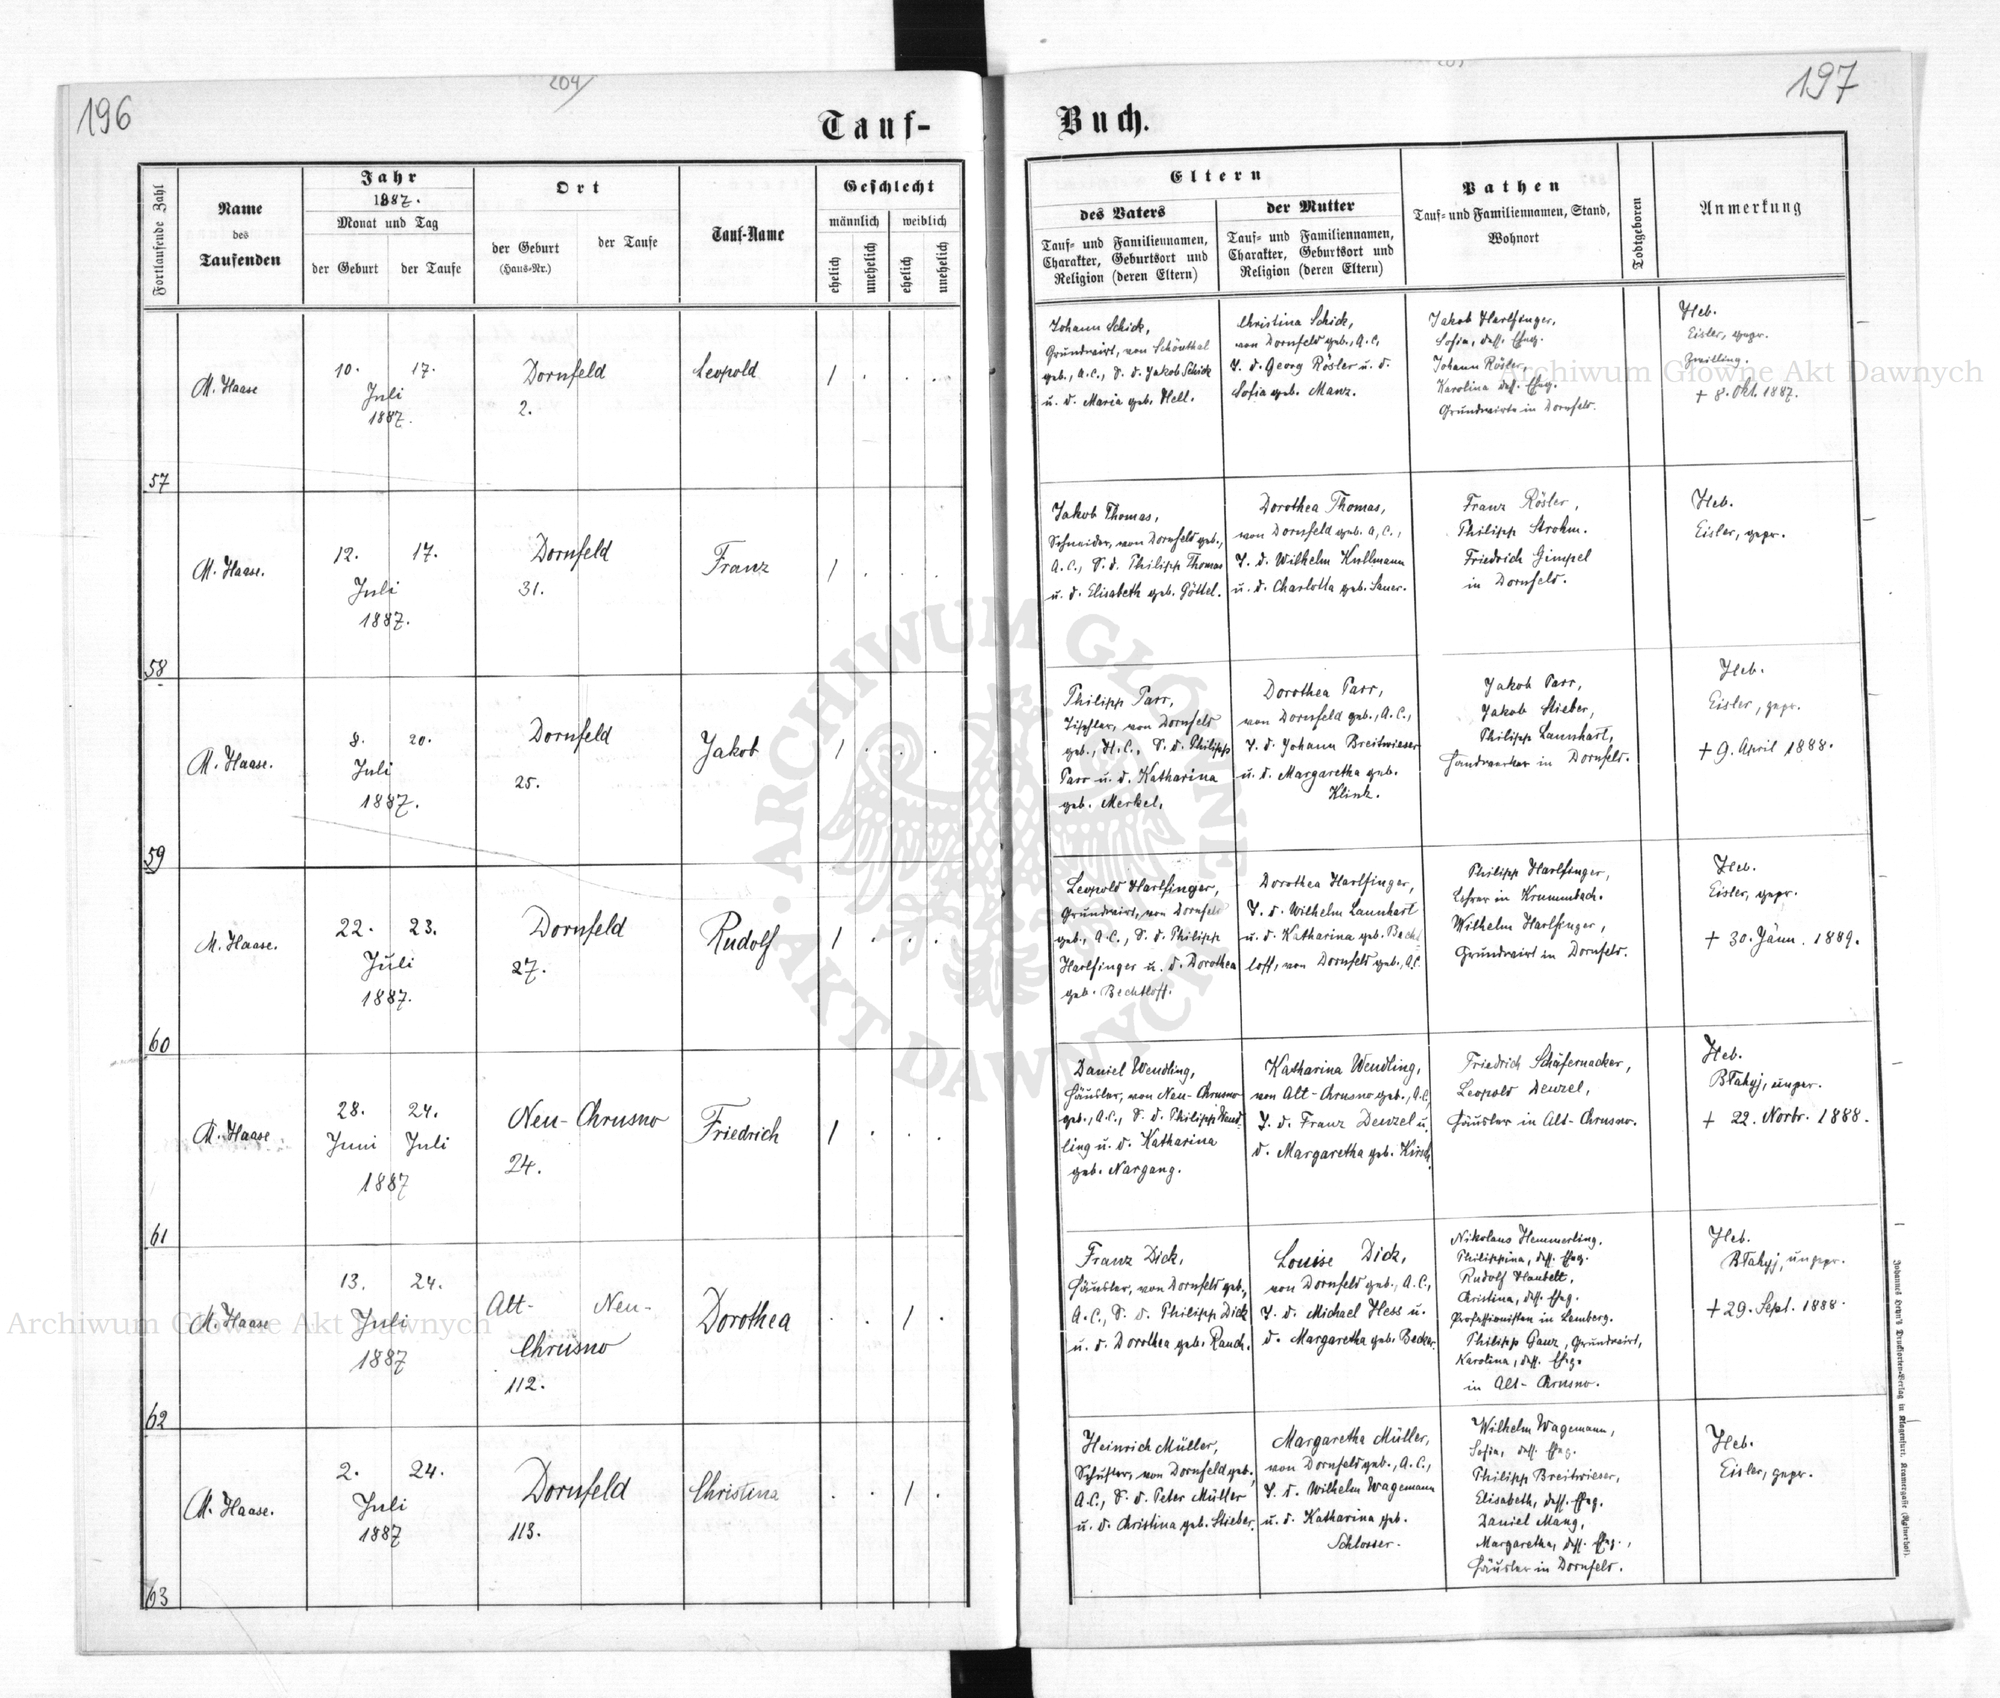 196
204
Tauf-
Fortlaufende Zahl
Name
des
Taufenden
Jahr
1887.
Monat und Tag
der Geburt
der Taufe
Ort
der Geburt
(Haus-Nr.)
der Taufe
Tauf-Name
Geschlecht
männlich
weiblich
ehelich
unehelich
ehelich
unehelich
57
M. Haase
10. 17.
Juli
1887.
Dornfeld
2.
Leopold
1 . . .
58
M. Haase.
12. 17.
Juli
1887.
Dornfeld
31.
Franz
1 . . .
59
M. Haase.
8. 20.
Juli
1887.
Dornfeld
25.
Jakob
1 . . .
60
M. Haase.
22. 23.
Juli
1887.
Dornfeld
27.
Rudolf
1 . . .
61
M. Haase
28. 24.
Juni Juli
1887
Neu-Chrusno
24.
Friedrich
1 . . .
62
M. Haase
13. 24.
Juli
1887
Alt- Neu-
Chrusno
112.
Dorothea
. . 1 .
63
M. Haase.
2. 24.
Juli
1887
Dornfeld
113.
Christina
. . 1 .
197
Buch.
Eltern
des Vaters
Tauf- und Familiennamen,
Charakter, Geburtsort und
Religion (deren Eltern)
der Mutter
Tauf- und Familiennamen,
Charakter, Geburtsort und
Religion (deren Eltern)
Pathen
Tauf- und Familiennamen, Stand,
Wohnort
Todtgeboren
Anmerkung
Johann Schick,
Grundwirt, von Schönthal
geb., A.C., S. d. Jakob Schick
u. d. Maria geb. Hell.
Christina Schick,
von Dornfeld geb., A.C.,
T. d. Georg Rösler u. d.
Sofia geb. Manz.
Jakob Harlfinger,
Sofia, dess. Eheg.
Johann Rösler,
Karolina dess. Eheg.
Grundwirte in Dornfeld.
Heb.
Eisler, gepr.
Zwilling.
+ 8. Okt. 1887.
Jakob Thomas,
Schneider, von Dornfeld geb.,
A.C., S. d. Philipp Thomas
u. d. Elisabeth geb. Göttel.
Dorothea Thomas,
von Dornfeld geb. A.C.,
T. d. Wilhelm Kullmann
u. d. Charlotta geb. Sauer.
Franz Rösler,
Philipp Strohm.
Friedrich Gimpel
in Dornfeld.
Heb.
Eisler, gepr.
Philipp Parr,
Tischler, von Dornfeld
geb., H.C., S. d. Philipp
Parr u. d. Katharina
geb. Merkel,
Dorothea Parr,
von Dornfeld geb., A.C.,
T. d. Johann Breitwieser
u. d. Margaretha geb.
Klink.
Jakob Parr,
Jakob Stieber,
Philipp Launhart,
Handwerker in Dornfeld.
Heb.
Eisler, gepr.
+ 9. April 1888.
Leopold Harlfinger,
Grundwirt, von Dornfeld
geb., A.C., S. d. Philipp
Harlfinger u. d. Dorothea
geb. Bechtloff.
Dorothea Harlfinger,
T. d. Wilhelm Launhart
u. d. Katharina geb. Becht
loff, von Dornfeld geb., A.C.
Philipp Harlfinger,
Lehrer in Krummbach.
Wilhelm Harlfinger,
Grundwirt in Dornfeld.
Heb.
Eisler, gepr.
+ 30. Jänn. 1889.
Daniel Wendling,
Häusler, von Neu-Chrusno
geb., A.C., S. d. Philipp Wend-
ling u. d. Katharina
geb. Nargang.
Katharina Wendling,
von Alt-Chrusno geb., A.C.,
T. d. Franz Denzel u.
d. Margaretha geb. Kirsch.
Friedrich Schäfernacker,
Leopold Denzel,
Häusler in Alt-Chrusno.
Heb.
Błahyj, ungepr.
+ 22. Novbr. 1888.
Franz Dick,
Häusler, von Dornfeld geb.,
A.C., S. d. Philipp Dick
u. d. Dorothea geb. Rauch.
Louise Dick,
von Dornfeld geb., A.C.,
T. d. Michael Hess u.
d. Margaretha geb. Becker.
Nikolaus Hemmerling.
Philippina, dess. Eheg.
Rudolf Haubelt,
Christina, dess. Eheg.
Professionisten in Lemberg.
Philipp Ganz, Grundwirt,
Karolina, dess. Eheg.
in Alt-Chrusno.
Heb.
Błahyj, ungepr.
+ 29. Sept. 1888.
Heinrich Müller,
Schuster, von Dornfeld geb.,
A.C., S. d. Peter Müller
u. d. Christina geb. Stieber.
Margaretha Müller,
von Dornfeld geb., A.C.,
T. d. Wilhelm Wagemann
u. d. Katharina geb.
Schlosser.
Wilhelm Wagemann,
Sofia, dess. Eheg.
Philipp Breitwieser,
Elisabeth, dess. Eheg.
Daniel Mang,
Margaretha, dess. Eheg.,
Häusler in Dornfeld.
Heb.
Eisler, gepr.
Johannes Heyn's Drucksorten-Verlag in Klagenfurt, Kramergasse
Archiwum Główne Akt Dawnych
Archiwum Główne Akt Dawnych
ARCHIWUM GŁÓWNE
AKT DAWNYCH